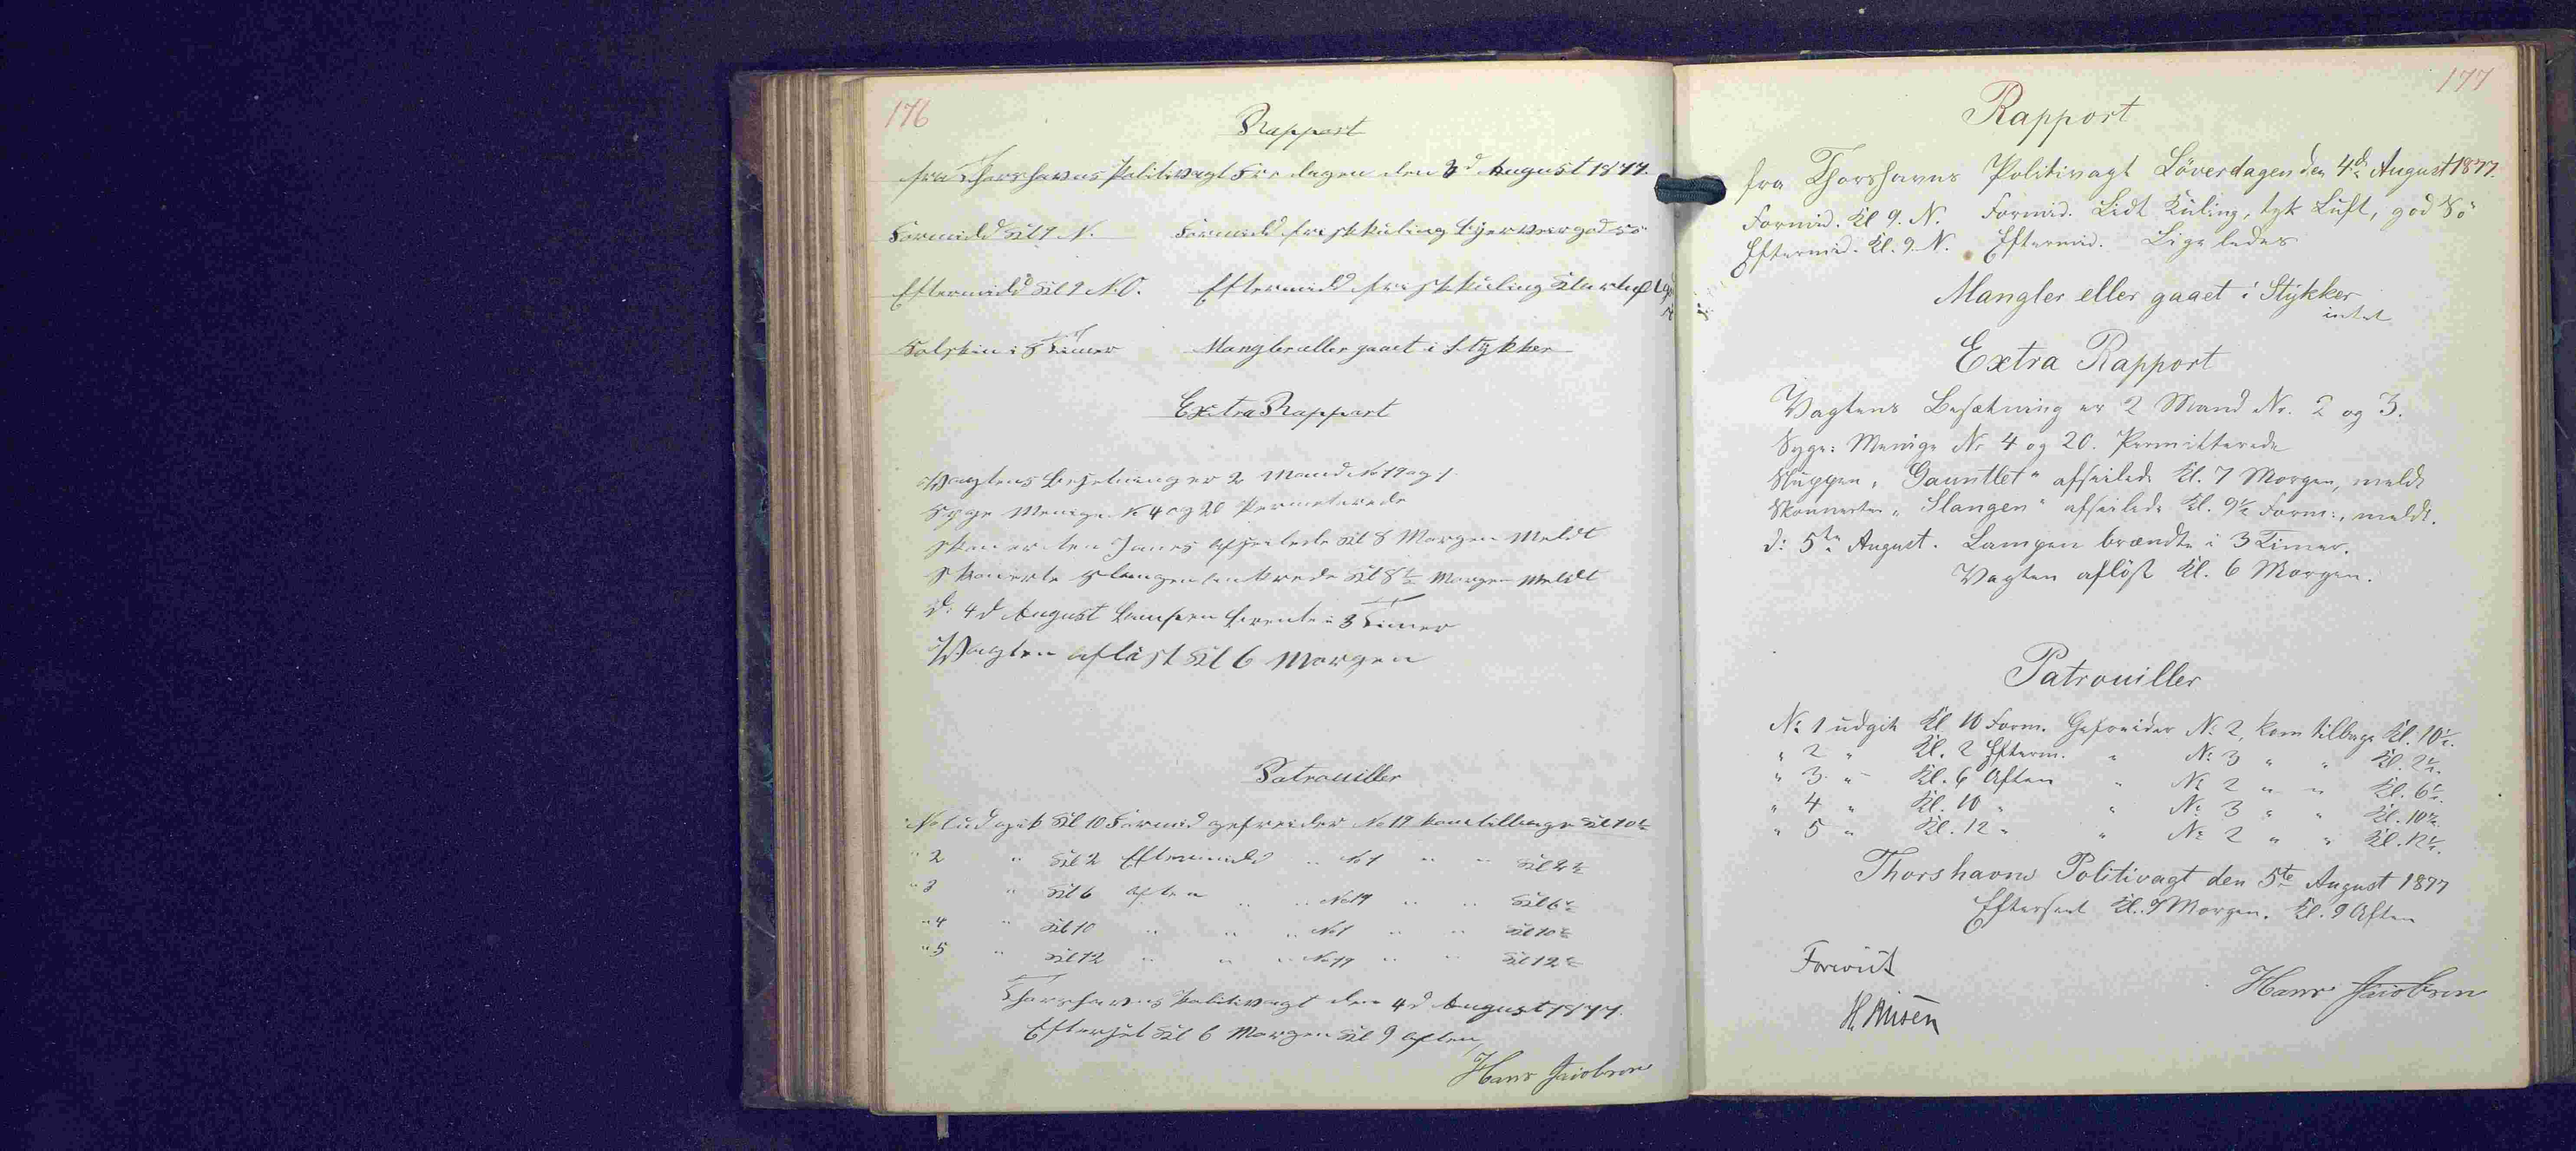 176
Rapport
fra Thorshavns Politivagt Fredagen den 3d August 1877.
Formidd Kl 9 N. Formidd frisk Kuling Byer veir god Sö
Eftermidd Kl 9 N.O. Eftermidd frisk Kuling Klar luft
Solskin i 8 Timer Mangler eller gaaet i Stykker
Extra Rapport
Vagtens Besetning er 2 Mand No 19 og 1.
Syge Menige N 4 og 20 Permeterede
Skonerten Janes afseilede Kl 8 Morgen Meldt
Skonerte Slangen ankrede Kl 8½ Morgen Meldt
D: 4d August Lampen brente i 3 Timer
Vagten aflöst Kl 6 Morgen
Patrouiller
No 1 udgik Kl 10 Formid gefreider No 19 kom tilbage Kl 10½
" 2 " Kl 2 Eftermidd " No 1 " " Kl 2½
" 3 " Kl 6 Aften " " No 19 " " Kl 6½
" 4 " Kl 10 " " " No 1 " " Kl 10½
" 5 " Kl 12 " " " No 19 " " Kl 12½
Thorshavns Politivagt den 4d August 1877.
Efterset Kl 6 Morgen Kl 9 Aften,
Hans Jacobsen
177
Rapport
fra Thorshavns Politivagt Löverdagen den 4de August 1877.
Formid. Kl 9. N. Formid. Lidt Kuling, tyk Luft, god Sö
Eftermid. Kl. 9. N. Eftermid. Ligeledes
Mangler eller gaaet i Stykker
intet
Extra Rapport
Vagtens Besætning er 2 Mand Nr. 2 og 3.
Syge: Menige Nr 4 og 20. Permitterede
Sluppen "Gauntlet" afseilede Kl. 7 Morgen, meldt
Skonnerten "Slangen" afseilede Kl. 9½ Form:, meldt.
d: 5te August. Lampen brændte i 3 Timer.
Vagten aflöst Kl. 6 Morgen.
Patrouiller
No 1 udgik Kl. 10 Form. Gefreider No 2, kom tilbage Kl. 10½.
" 2 " Kl. 2 Efterm. " No 3 " " Kl. 2½.
" 3 " Kl. 6 Aften " No 2 " " Kl. 6½.
" 4 " Kl. 10 " " No 3 " " Kl. 10½.
" 5 " Kl. 12 " " No 2 " " Kl. 12½.
Thorshavns Politivagt den 5te August 1877
Efterseet Kl. 9 Morgen. Kl. 9 Aften
Forevist
Hans Jacobsen